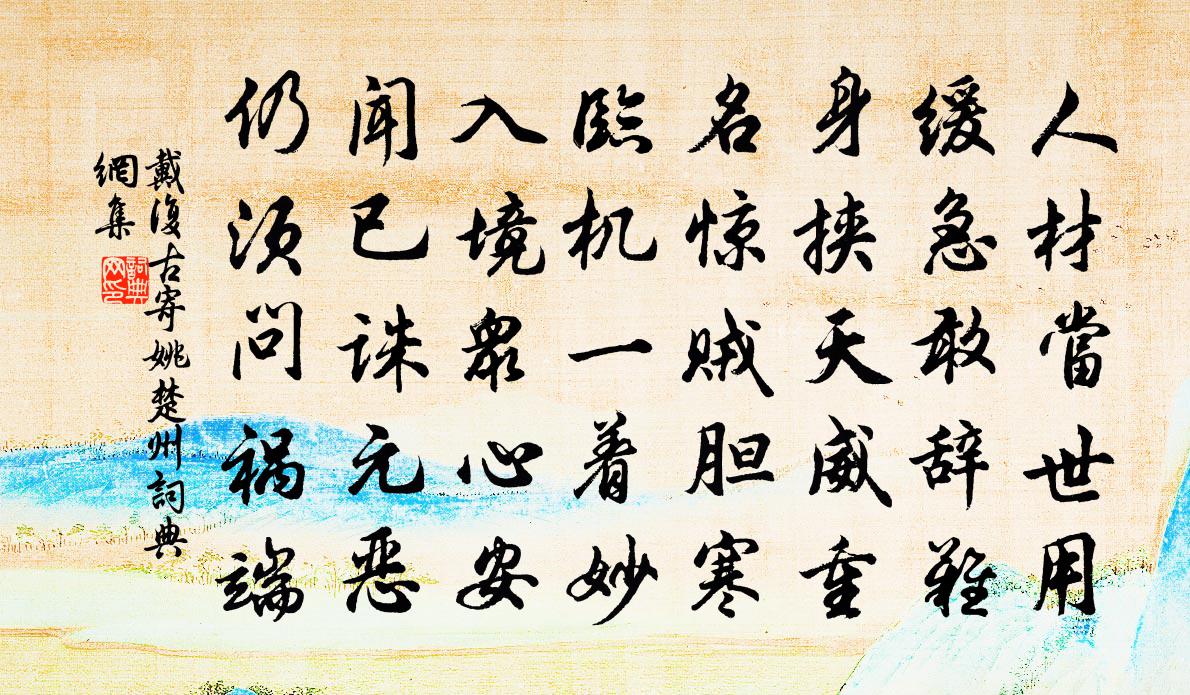 人材當世用
缓急敢辞難
身挾天威重
名惊贼胆寒
臨机一着妙
入境眾心安
闻已诛元恶
仍须问祸端
戴復古寄姚楚州詞典
網集
詞典
网印